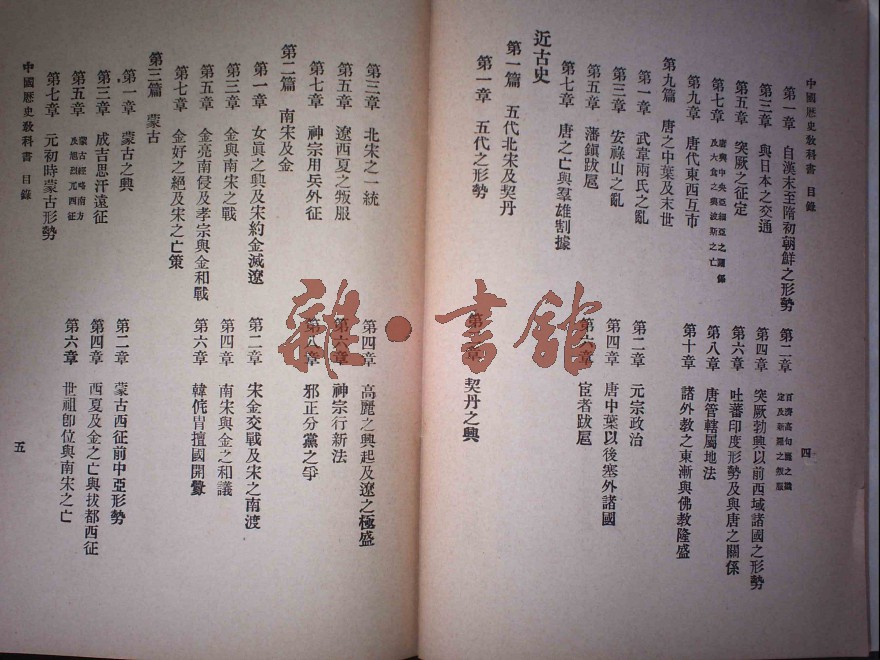 中國歷史敎科書 目錄
第一章 自漢末至隋初朝鮮之形勢 第二章 百濟高句麗之滅定及新羅之叛服
第三章 與日本之交通 第四章 突厥勃興以前西域諸國之形勢
第五章 突厥之征定 第六章 吐蕃印度形勢及與唐之關係
第七章 唐與中央亞細亞之關係及大食之興波斯之亡 第八章 唐管轄屬地法
第九章 唐代東西互市 第十章 諸外敎之東漸與佛敎隆盛
第九篇 唐之中葉及末世
第一章 武韋兩氏之亂 第二章 元宗政治
第三章 安祿山之亂 第四章 唐中葉以後塞外諸國
第五章 藩鎭跋扈 第六章 宦者跋扈
第七章 唐之亡與羣雄割據
近古史
第一篇 五代北宋及契丹
第一章 五代之形勢 第二章 契丹之興
四
第三章 北宋之一統 第四章 高麗之興起及遼之極盛
第五章 遼西夏之叛服 第六章 神宗行新法
第七章 神宗用兵外征 第八章 邪正分黨之爭
第二篇 南宋及金
第一章 女眞之興及宋約金滅遼 第二章 宋金交戰及宋之南渡
第三章 金與南宋之戰 第四章 南宋與金之和議
第五章 金亮南侵及孝宗與金和戰 第六章 韓侂胄擅國開釁
第七章 金好之絕及宋之亡策
第三篇 蒙古
第一章 蒙古之興 第二章 蒙古西征前中亞形勢
第三章 成吉思汗遠征 第四章 西夏及金之亡與拔都西征
第五章 蒙古經略南方及旭烈兀西征 第六章 世祖卽位與南宋之亡
第七章 元初時蒙古形勢
中國歷史敎科書 目錄
五
雜·書館